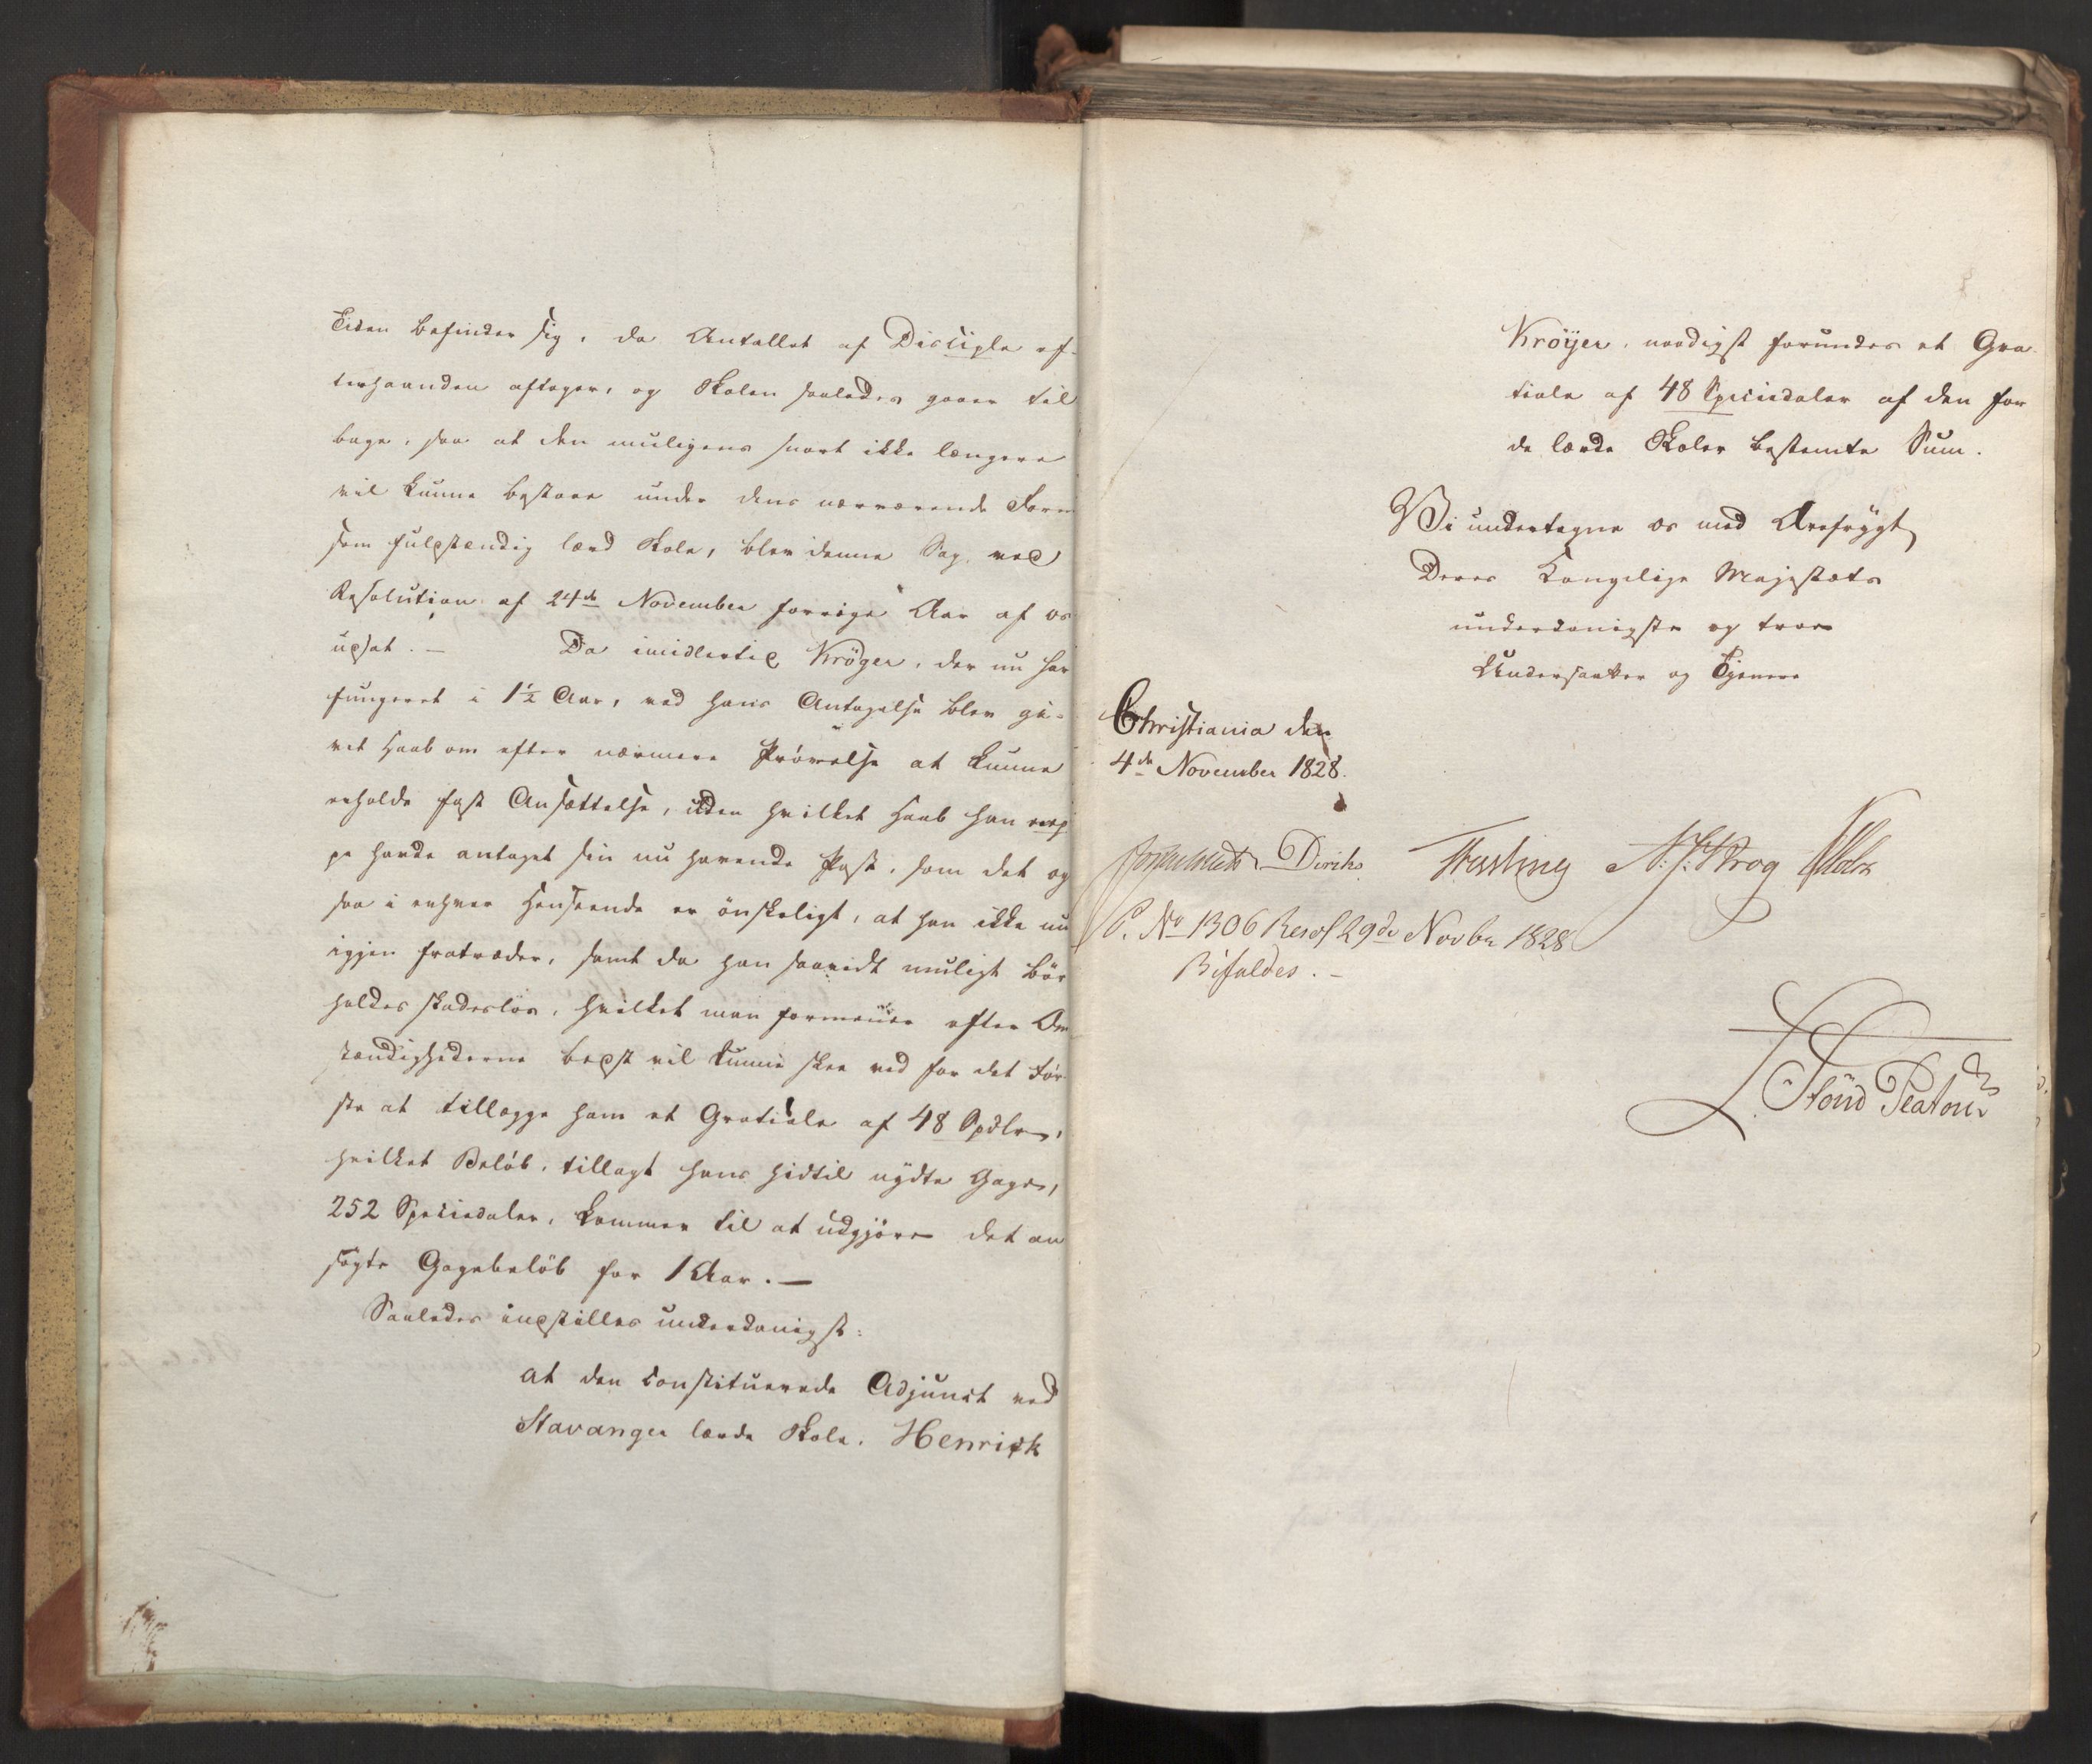 Tiden befinder sig, da Antallet af Disciple ef-
terhaanden aftager, og Skolen saaledes gaaer til
bage, saa at den muligens snart ikke længere
vil kunne bestaae under dens nærværende Form
som fuldstændig lærd Skole, blev denne Sag ved
Resolution af 24de November forrige Aar af os
udsat. — Da imidlertid Kröyer, der nu har
fungeret i 1½ Aar, ved hans Antagelse blev gi-
vet Haab om efter nærmere Prövelse at kunne
erholde fast Ansættelse, uden hvilket Haab han nep
pe havde antaget sin nu havende Post, som det og
saa i enhver Henseende er önskeligt, at han ikke nu
igjen fratræder, samt da han saavidt muligt bör
holdes skadeslös, hvilket man formener efter Om
stændighederne bedst vil kunne skee ved for det För-
ste at tillægge ham et Gratiale af 48 Spdlr,
hvilket Belöb, tillagt hans hidtil nydte Gage,
252 Speciedaler, kommer til at udgjöre det an
sögte Gagebelöb for 1 Aar. —
Saaledes indstilles underdanigst:
at den constituerede Adjunct ved
Stavanger lærde Skole, Henrick
Kröyer, naadigst forundes et Gra-
tiale af 48 Speciedaler af den for
de lærde Skoler bestemte Sum.
Vi undertegne os med Ærefrygt
Deres Kongelige Majestæts
underdanigste og troe
Undersaatter og Tjenere
Christiania den
4de November 1828.
Diriks Fasting N. J. Krog
P. No 1306 Resol 29de Novbr 1828
Bifaldes. —